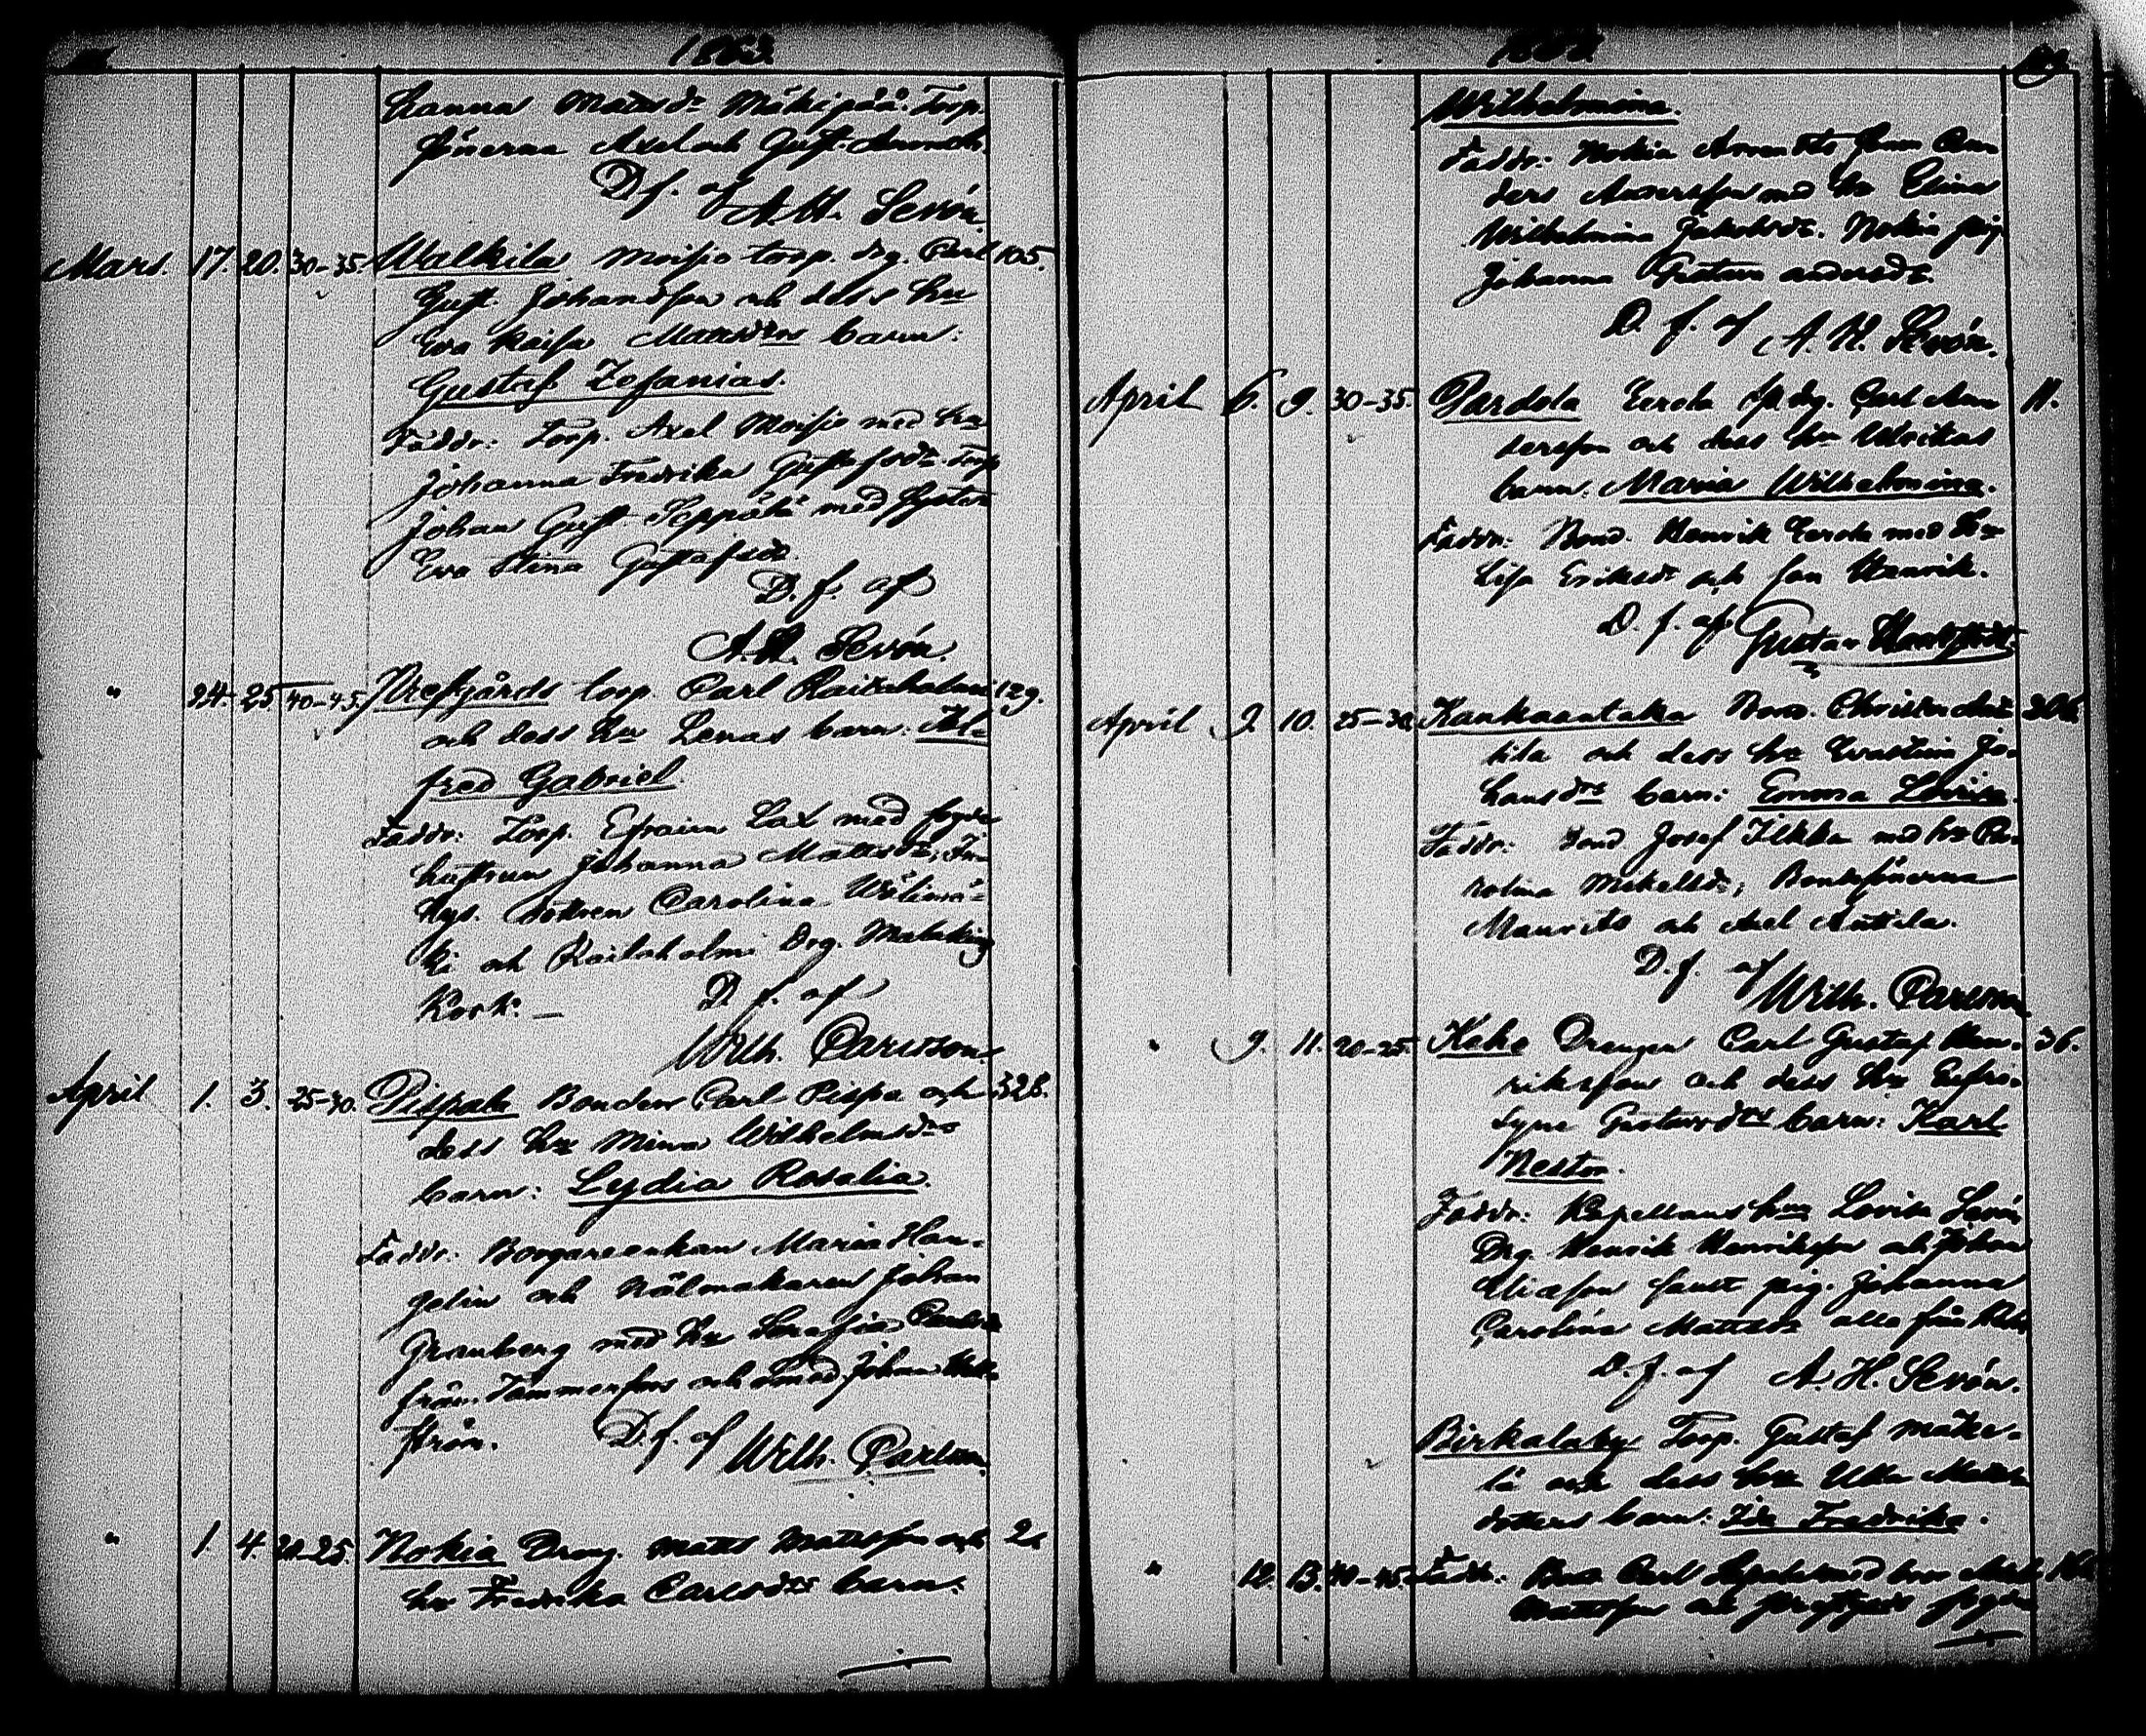 1863.
Hanna Mattsdr Mäkipää. Torp.
sönerna Axel och Gust.
D. f. af
A. H. Sevón.
Mars. 17. 20. 30-35. Walkila Moisio torp. drg. Carl 105.
Gust. Johansson och dess hu
Eva Kaisa Mattsdrs barn:
Gustaf Zefanias.
Faddr: Torp. Axel Moisio med hu
Johanna Fredrika Gustafsdr. Torp
Johan Gust. Seppälä med syster
Eva Stina Gustafsdr.
D. f. af
A. H. Sevón.
" 24. 25 40-45. torp. Carl Raitaholmi 129.
och dess hu Lenas barn: Al-
fred Gabriel.
Faddr: Torp. Efraim Lax med
hustrun Johanna Mattsdr, In-
hys. dottren Carolina Wälimä-
ki och Raitaholmi Drg.
Kork. —
D. f. af
Wilh. Carlsson.
April 1. 3. 25-30. Pispala Bonden Carl Pispa och 328.
dess hu Mina Wilhelmsdrs
barn: Lydia Rosalia.
Faddr: Borgareenkan Maria Han-
gelin och Nålmakaren Johan
Granberg med hu Serafia Carlsdr
från Tammerfors och Smed. Johan
ström.
D. f. af Wilh. Carlsson.
" 1. 4. 20-25. Nokia Dreng. Matts Mattsson och 2.
hu Fredrika Carlsdrs barn:
1863.
Wilhelmina.
Faddr: Nokia Arrendts sonen An
ders Andersson med hu Elina
Wilhelmina Jakobsdr. Nokia pig
Johanna Gustava andersdr.
D. f. af A. H. Sevón.
April 6. 9. 30-35. Pardola Eerola sp. dg. Carl An 11.
dersson och dess hu Ulrikas
barn: Maria Wilhelmina.
Faddr: Bond. Henrik Eerola med hu
Lisa Eriksdr och son Henrik.
D. f. af Gustav
April 9. 10. 25-30. Kankaantaka Bond. Christer An 306.
tila och dess hu Evastina Jo-
hansdrs barn: Emma Lovisa.
Faddr: Bond Josef Ilkka med hu Ca-
rolina Mikelsdr, Bondesönerna
Maurits och Axel Anttila.
D. f. af
Wilh. Carlsson
" 9. 11. 20-25. Keho Drengen Carl Gustaf Hen- 36.
riksson och dess hu Eufro-
syne Gustavsdrs barn: Karl
Nestor.
Faddr: Kapellans hu Lovisa Sevón
Drg. Henrik Henriksson och Johan
Eliasson samt pig. Johanna
Carolina Mattsdr alla från
D. f. af A. H. Sevón.
Birkalaby Torp. Gustaf Mäke-
lä och dess hu Ulla Matts
dotters barn: Ida Fredrika.
" 12. 13. 40-45. Faddr: Carl med
Mattsson och